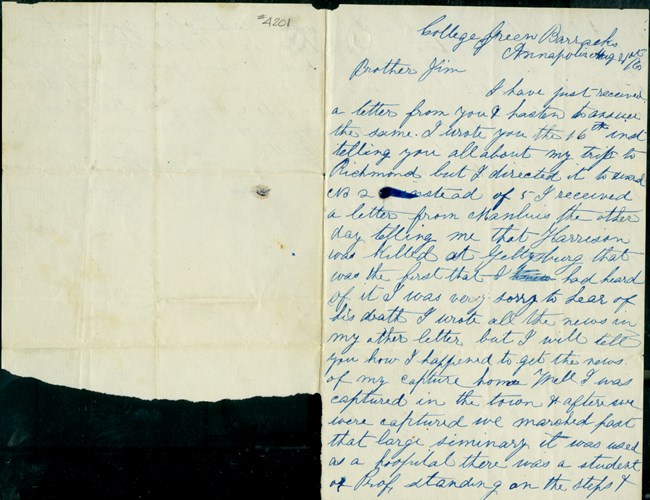 #4201
College Green Barracks
Annapolis Aug 21st /63
Brother Jim
I have just received
a letter from you & hasten to answer
the same. I wrote you the 16th inst
telling you all about my trip to
Richmond but I directed it to ward
No 2 instead of 5 I received
a letter from Manlius the other
day telling me that Harrison
was killed at Gettysburg that
was the first that I had heard
of it I was very sorry to hear of
his death I wrote all the news in
my other letter but I will tell
you how I happened to get the news
of my capture home Well I was
captured in the town & after we
were captured we marched past
that large siminary it was used
as a hospital there was a student
or Prof, standing on the steps &